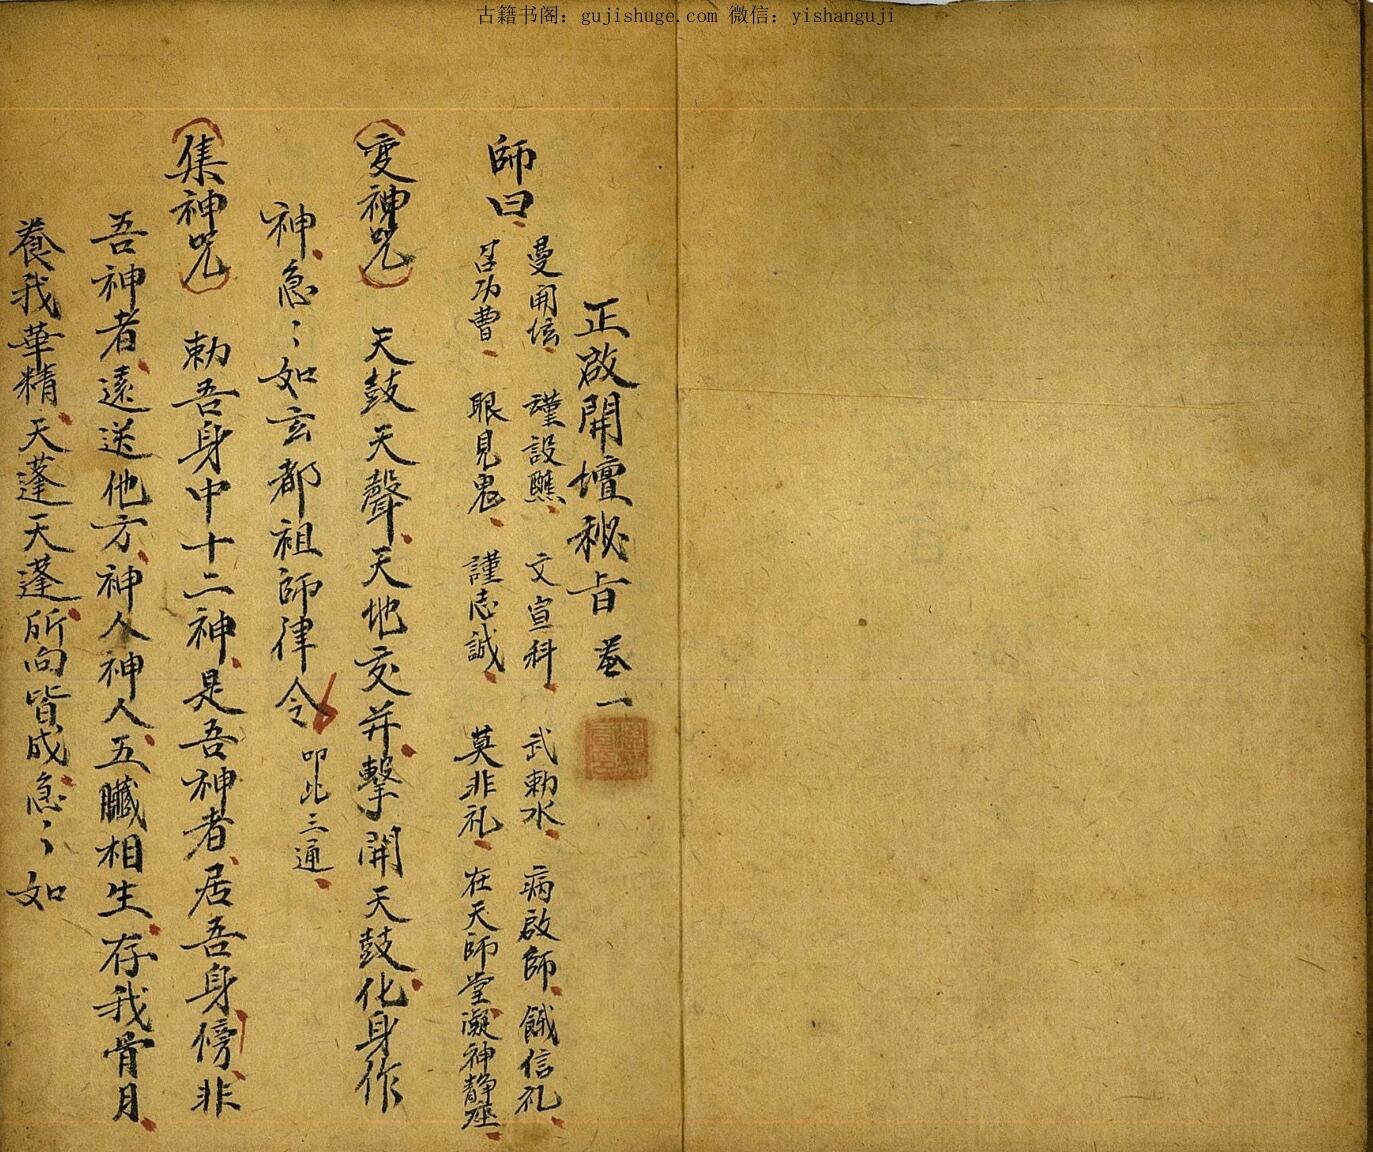 古籍书阁：gujishuge.com 微信：yishanguji
正啟開壇秘旨 卷一
師曰
曼開坛 謹設醮 文宣科 武勅水 病啟師 餓信礼
召功曹 眼見鬼 謹志誠 莫非礼 在天師堂凝神静座
變神咒 天鼓天聲天地交并擊開天鼓化身作
神急〻如玄都祖師律令 叩比三通
集神咒 勅吾身中十二神是吾神者居吾身傍非
吾神者遠送他方神人神人五臟相生存我骨月
養我華精天蓬天蓬所向皆成急〻如